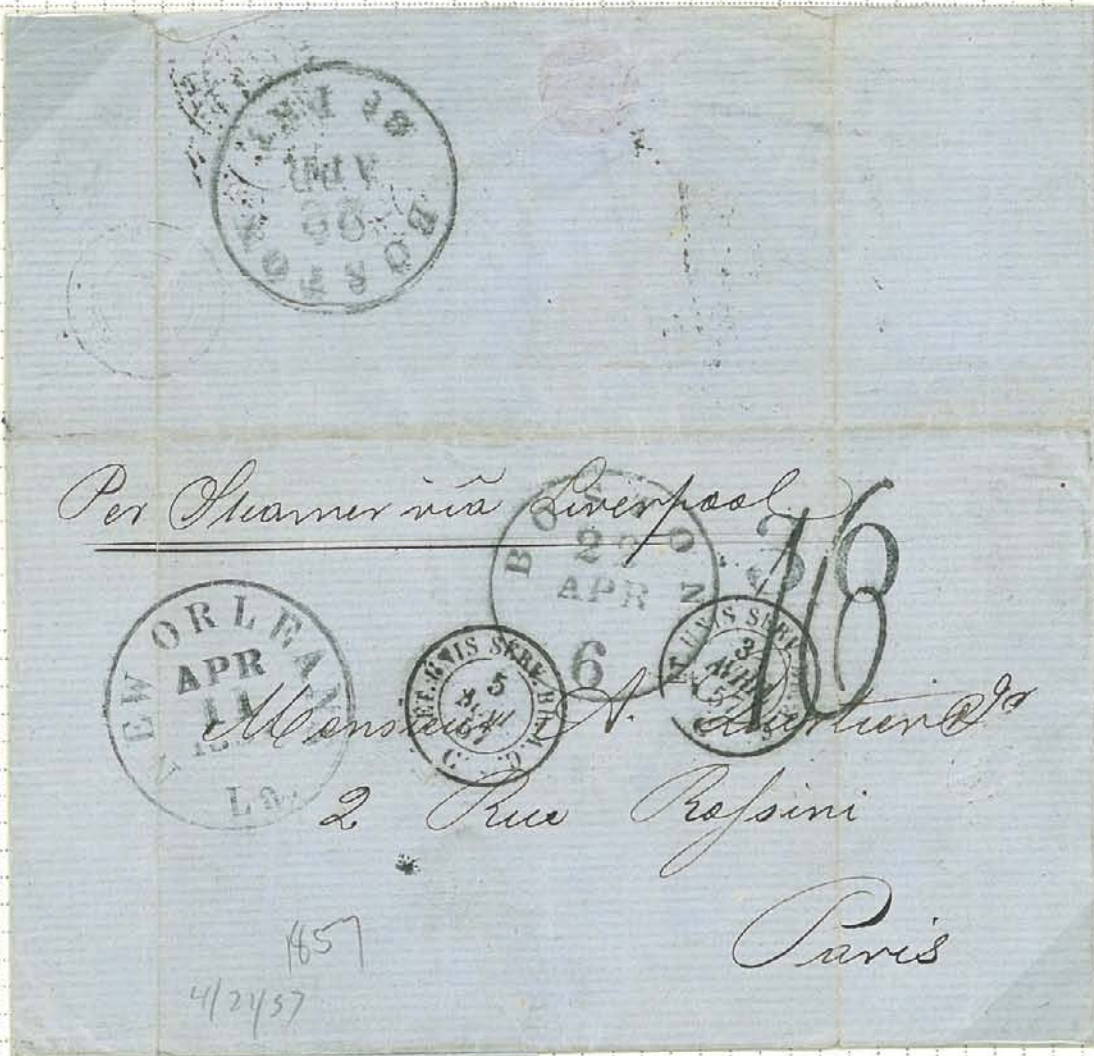 BOSTON
BR. PKT.
APR
22
Per Steamer viâ Liverpool
BOSTON
22
APR
6
36
16
NEW ORLEANS
APR
11
La
ET. UNIS SERV. BR. A. C.
5
MAI
57
ET. UNIS SERV.
3
57
Monsieur A.
2 Rue Rossini
Paris
1857
4/21/57